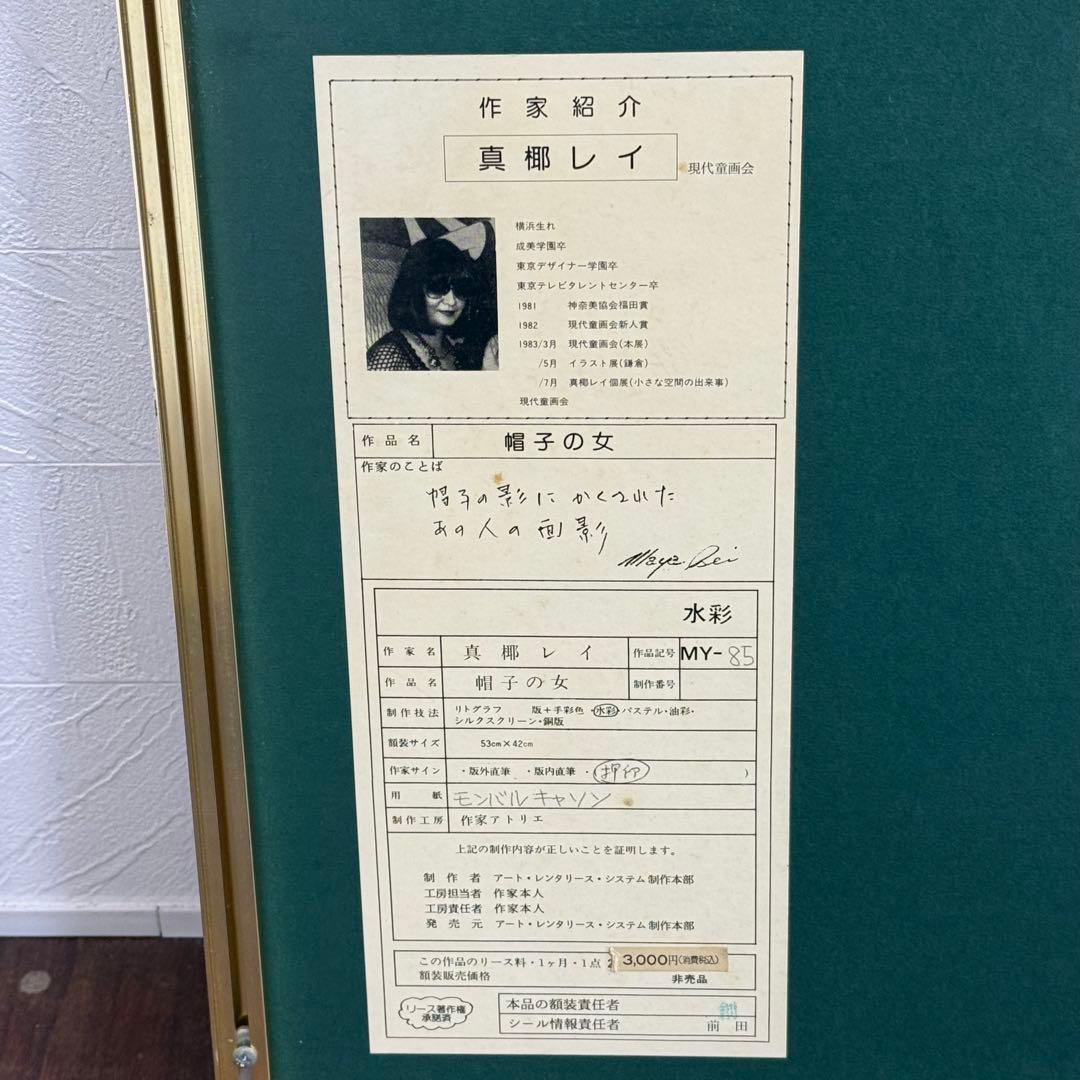 作家紹介
真椰レイ 現代童画会
横浜生れ
成美学園卒
東京デザイナー学園卒
東京テレビタレントセンター卒
1981 神奈美協会福田賞
1982 現代童画会新人賞
1983/3月 現代童画会(本展)
/5月 イラスト展(鎌倉)
/7月 真椰レイ個展(小さな空間の出来事)
現代童画会
作品名 帽子の女
作家のことば
帽子の影にかくされた
あの人の面影
Maya Rei
水彩
作家名 真椰レイ 作品記号 MY-85
作品名 帽子の女 制作番号
制作技法 リトグラフ 版+手彩色・水彩・パステル・油彩・
シルクスクリーン・銅版
額装サイズ 53cm×42cm
作家サイン ・版外直筆 ・版内直筆 ・(押印 )
用紙 モンバルキャソン
制作工房 作家アトリエ
上記の制作内容が正しいことを証明します。
制作者 アート・レンタリース・システム制作本部
工房担当者 作家本人
工房責任者 作家本人
発売元 アート・レンタリース・システム制作本部
この作品のリース料・1ヶ月・1点 3,000円(消費税込)
額装販売価格 非売品
リース著作権
承諾済
本品の額装責任者
シール情報責任者 前田